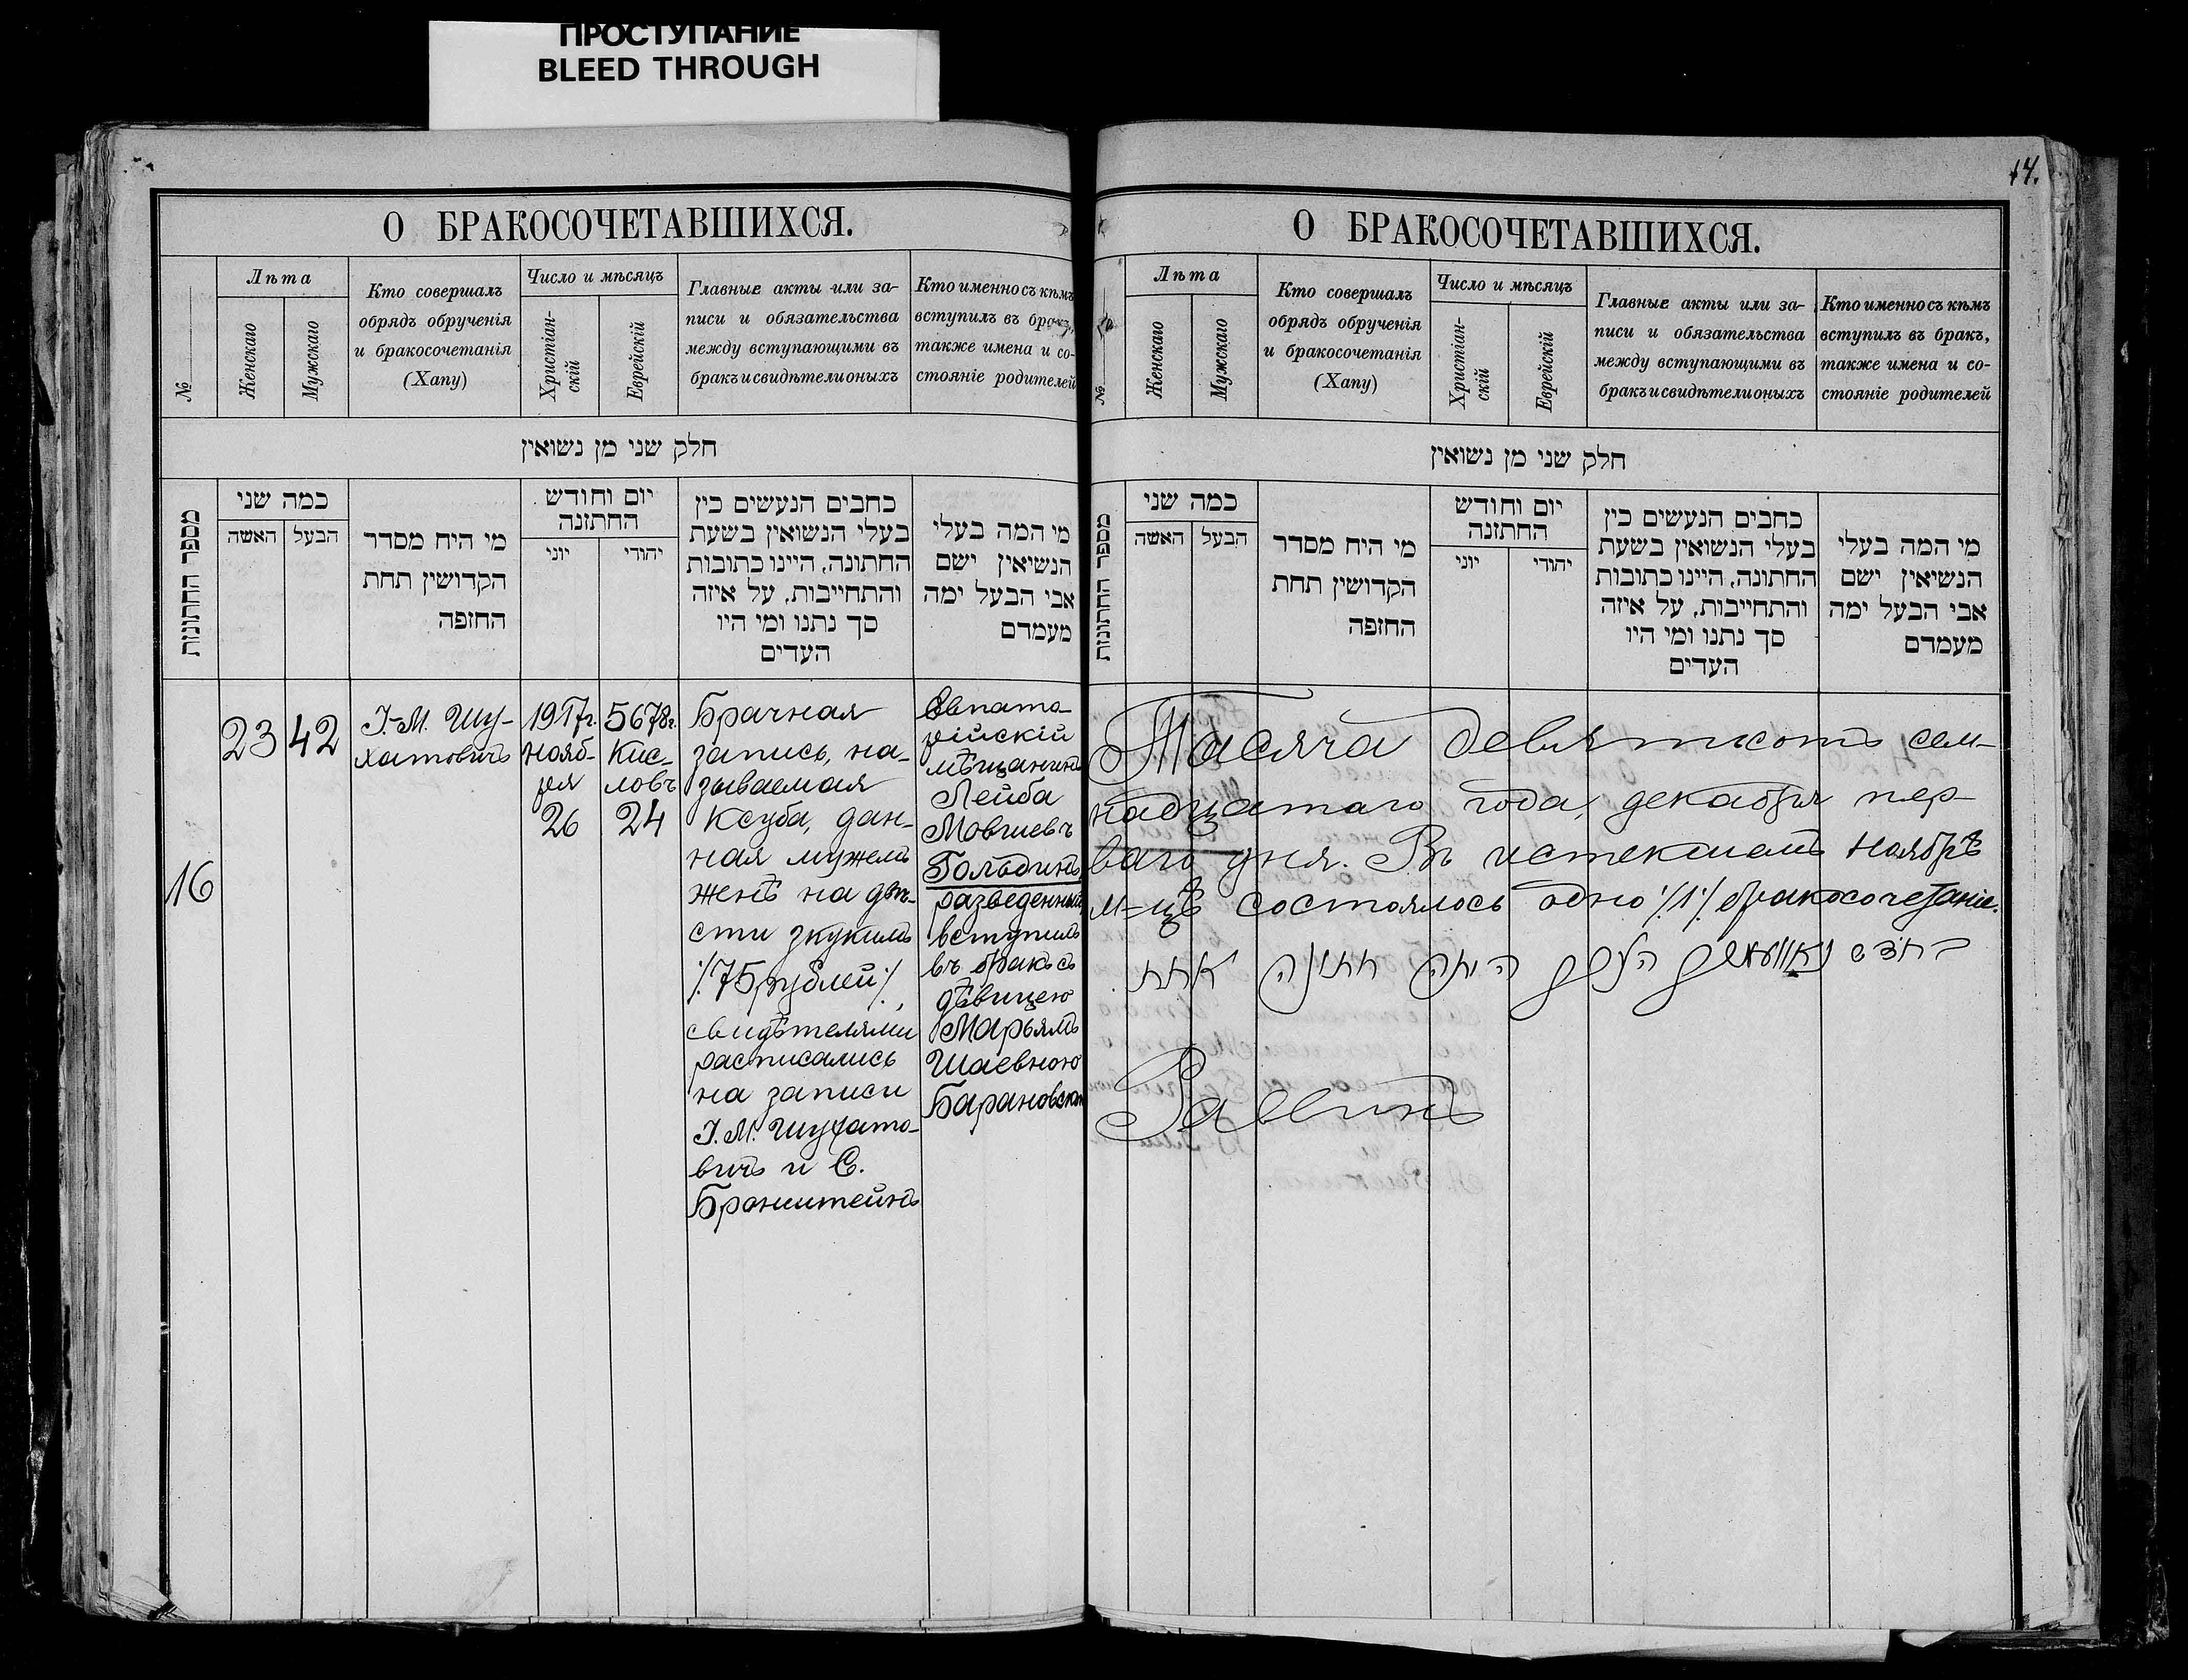 ПРОСТУПАНИЕ
BLEED THROUGH
О БРАКОСОЧЕТАВШИХСЯ.
№
Лѣта
Женскаго
Мужскаго
Кто совершалъ
обрядъ обрученія
и бракосочетанія
(Хапу)
Число и мѣсяцъ
Христіан-
скій
Еврейскій
Главные акты или за-
писи и обязательства
между вступающими въ
бракъ и свидѣтели оныхъ
Кто именно съ кѣмъ
вступилъ въ бракъ,
также имена и со-
стояніе родителей
חלק שני מן נשואין
מספר החתונות
כמה שני
האשה
הבעל
מי היח מסדר
הקדושין תחת
החזפה
יום וחודש
החתונה
יוני
יהודי
כחבים הנעשים כין
בעלי הנשואין בשעת
החתונה, היינו כתובות
והתחייבות, על איזה
סך נתנו ומי היו
העדים
מי המה בעלי
הנשיאין ישם
אבי הבעל ימה
מעמדם
16
23
42
І-М. Шу-
хатовичъ
1917г.
нояб-
ря
26
5678г.
Кис-
ловъ
24
Брачная
запись, на-
зываемая
Ксуба, дан-
ная мужемъ
женѣ на двѣ-
сти зкукимъ
/:75 рублей:/,
свидѣтелями
расписались
на записи
І. М. Шухато-
вичъ и С.
Бронштейнъ
Евпато-
рійскій
мѣщанинъ
Лейба
Мовшевъ
Гольдинъ,
разведенный,
вступилъ
въ бракъ съ
дѣвицею
Марьямъ
Шаевною
Барановской
14.
О БРАКОСОЧЕТАВШИХСЯ.
№
Лѣта
Женскаго
Мужскаго
Кто совершалъ
обрядъ обрученія
и бракосочетанія
(Хапу)
Число и мѣсяцъ
Христіан-
скій
Еврейскій
Главные акты или за-
писи и обязательства
между вступающими въ
бракъ и свидѣтели оныхъ
Кто именно съ кѣмъ
вступилъ въ бракъ,
также имена и со-
стояніе родителей
חלק שני מן נשואין
מספר החתונות
כמה שני
האשה
הבעל
מי היח מסדר
הקדושין תחת
החזפה
יום וחודש
החתונה
יוני
יהודי
כחבים הנעשים כין
בעלי הנשואין בשעת
החתונה, היינו כתובות
והתחייבות, על איזה
סך נתנו ומי היו
העדים
מי המה בעלי
הנשיאין ישם
אבי הבעל ימה
מעמדם
Тысяча девятьсотъ сем-
надцатаго года, декабря пер-
ваго дня. Въ истекшемъ ноябрѣ
м-цѣ состоялось одно /:1:/ бракосочетаніе.
היתה חתונה אחת
Раввинъ